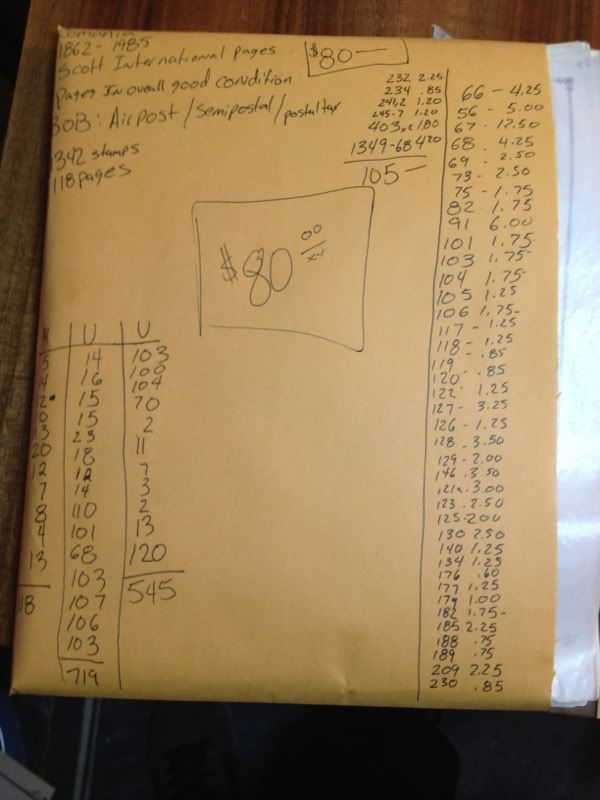 Romania
1862 - 1985
Scott International pages
$80—
Pages In overall good condition
BOB: Airpost/semipostal/postal tax
1342 stamps
118 pages
232 2.25
234 .85
241,2 1.20
245-7 1.20
403x2 1.80
1349-68 4.20
105—
$80 00/xx
66 - 4.25
56 - 5.00
67 - 12.50
68 4.25
69 - 2.50
73 - 2.50
75 - 1.75
82 1.75
91 6.00
101 1.75
103 1.75
104 1.75
105 1.25
106 1.75-
117 - 1.25
118 - 1.25
119 - .85
120 - .85
122 1.25
127 - 3.25
126 - 1.25
128 . 3.50
129 - 2.00
146 3.50
121a - 3.00
123 . 2.50
125 - 2.00
130 2.50
140 1.25
134 1.25
176 .60
177 1.25
179 1.00
182 1.75-
185 2.25
188 .75
189 .75
209 2.25
230 .85
U U
5 14 103
4 16 100
2 15 104
0 15 70
13 23 2
20 18 11
12 12 7
7 14 3
8 110 2
4 101 13
13 68 120
118 103 545
107
106
103
719